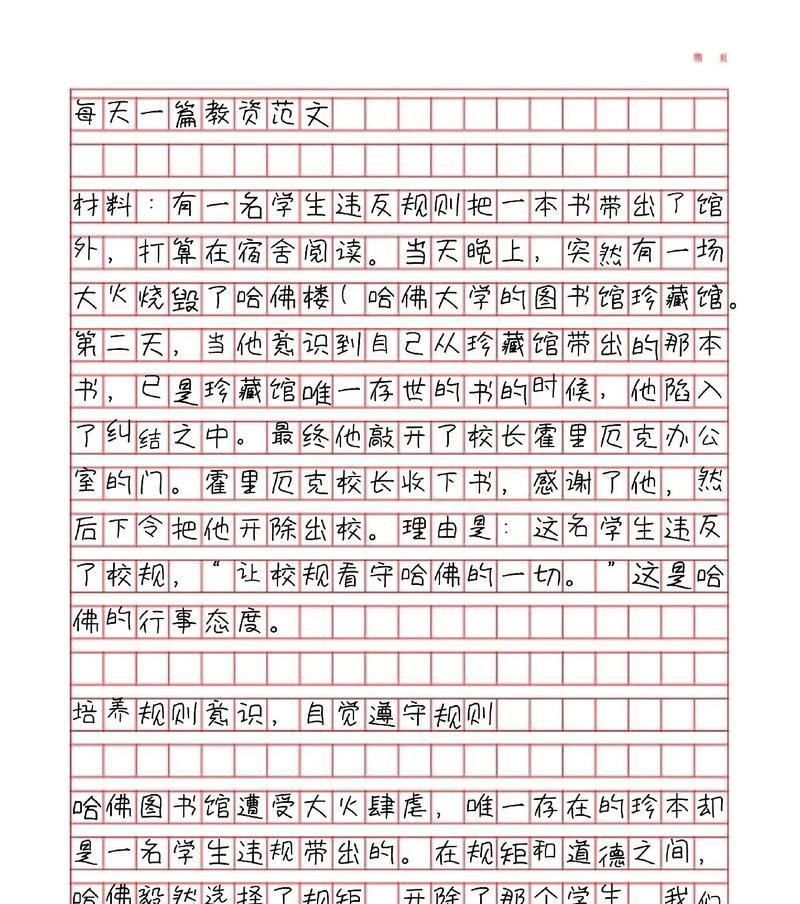 每天一篇教资范文
材料：有一名学生违反规则把一本书带出了馆
外，打算在宿舍阅读。当天晚上，突然有一场
大火烧毁了哈佛楼（哈佛大学的图书馆珍藏馆。
第二天，当他意识到自己从珍藏馆带出的那本
书，已是珍藏馆唯一存世的书的时候，他陷入
了纠结之中。最终他敲开了校长霍里厄克办公
室的门。霍里厄克校长收下书，感谢了他，然
后下令把他开除出校。理由是：这名学生违反
了校规，“让校规看守哈佛的一切。”这是哈
佛的行事态度。
培养规则意识，自觉遵守规则
哈佛图书馆遭受大火肆虐，唯一存在的珍本却
是一名学生违规带出的。在规矩和道德之间，
哈佛毅然选择了规矩，开除了那个学生。我们